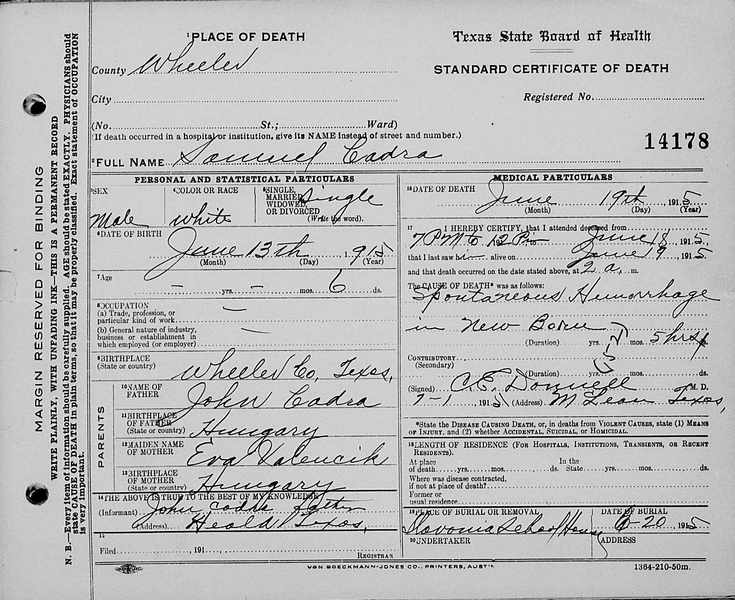 MARGIN RESERVED FOR BINDING
WRITE PLAINLY, WITH UNFADING INK—THIS IS A PERMANENT RECORD
N. B.—Every item of information should be carefully supplied. AGE should be stated EXACTLY. PHYSICIANS should
state CAUSE OF DEATH in plain terms, so that it may be properly classified. Exact statement of OCCUPATION
is very important.
1 PLACE OF DEATH
County Wheeler
City
(No. St.; Ward)
(If death occurred in a hospital or institution, give its NAME instead of street and number.)
Texas State Board of Health
STANDARD CERTIFICATE OF DEATH
Registered No.
14178
2 FULL NAME Samuel Cadra
PERSONAL AND STATISTICAL PARTICULARS
3 SEX
Male
4 COLOR OR RACE
White
5 SINGLE, MARRIED, WIDOWED, OR DIVORCED
(Write the word).
Single
6 DATE OF BIRTH
June 13th 1915
(Month) (Day) (Year)
7 Age
— yrs. — mos. 6 ds.
8 OCCUPATION
(a) Trade, profession, or
particular kind of work —
(b) General nature of industry,
business or establishment in
which employed (or employer) —
9 BIRTHPLACE
(State or country) Wheeler Co, Texas,
PARENTS
10 NAME OF
FATHER John Cadra
11 BIRTHPLACE
OF FATHER
(State or country) Hungary
12 MAIDEN NAME
OF MOTHER Eva Valencik
13 BIRTHPLACE
OF MOTHER
(State or country) Hungary
14 THE ABOVE IS TRUE TO THE BEST OF MY KNOWLEDGE
(Informant) John Cadra father
(Address) Heald Texas,
15
Filed 191
REGISTRAR
MEDICAL PARTICULARS
16 DATE OF DEATH June 19th 1915
(Month) (Day) (Year)
17 I HEREBY CERTIFY, that I attended deceased from
7 PM to 12 Pm June 18 1915
that I last saw him alive on June 19 1915
and that death occurred on the date stated above, at 2 a. m.
The CAUSE OF DEATH* was as follows:
Spontaneous Hemorrhage
in New Born
(Duration) yrs. mos. 5 hrs
CONTRIBUTORY
(Secondary)
(Duration) yrs. mos. ds.
(Signed) C.E. Donnell M. D.
7-1 1915 (Address) McLean Texas,
*State the DISEASE CAUSING DEATH, or, in deaths from VIOLENT CAUSES, state (1) MEANS
OF INJURY, and (2) whether ACCIDENTAL, SUICIDAL, or HOMICIDAL.
18 LENGTH OF RESIDENCE (FOR HOSPITALS, INSTITUTIONS, TRANSIENTS, OR RECENT
RESIDENTS).
At place of death yrs. mos. ds. In the State yrs. mos. ds.
Where was disease contracted,
if not at place of death?
Former or
usual residence
19 PLACE OF BURIAL OR REMOVAL
Slavonia School House
DATE OF BURIAL
6-20 1915
20 UNDERTAKER
ADDRESS
VON BOECKMANN-JONES CO., PRINTERS, AUSTIN
1364-210-50m.